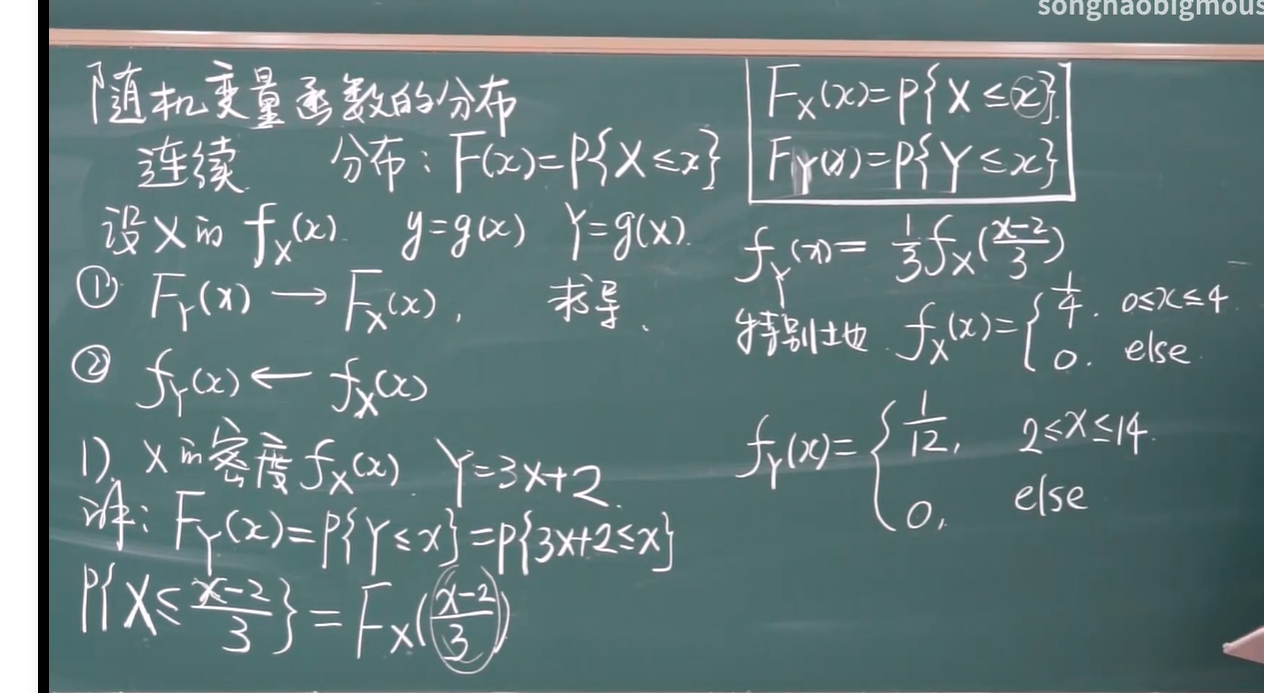 songhaobigmous
随机变量函数的分布
连续 分布: F(x)=P{X≤x}
设X的 f_X(x). y=g(x) Y=g(X).
① F_Y(x) → F_X(x), 求导、
② f_Y(x) ← f_X(x)
1). X的密度 f_X(x). Y=3X+2.
解: F_Y(x)=P{Y≤x}=P{3X+2≤x}
P{X≤(x-2)/3}=F_X((x-2)/3)
F_X(x)=P{X≤x}.
F_Y(x)=P{Y≤x}
f_Y(x)= 1/3 f_X((x-2)/3)
特别地. f_X(x)={ 1/4. 0≤x≤4.
0. else.
f_Y(x)={ 1/12, 2≤x≤14.
0, else